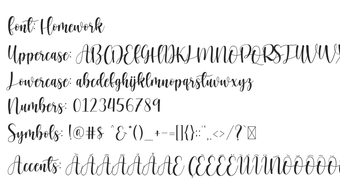 font: Homework
Uppercase: ABCDEFGHIJKLMNOPQRSTUVW
Lowercase: abcdefghijklmnopqrstuvwxyz
Numbers: 0123456789
Symbols: !@#$ ^&*()_+-=[]{}:;",.<>/?`~
Accents: ÀÁÂÃÄÅÆÇÈÉÊËÌÍÎÏÑ